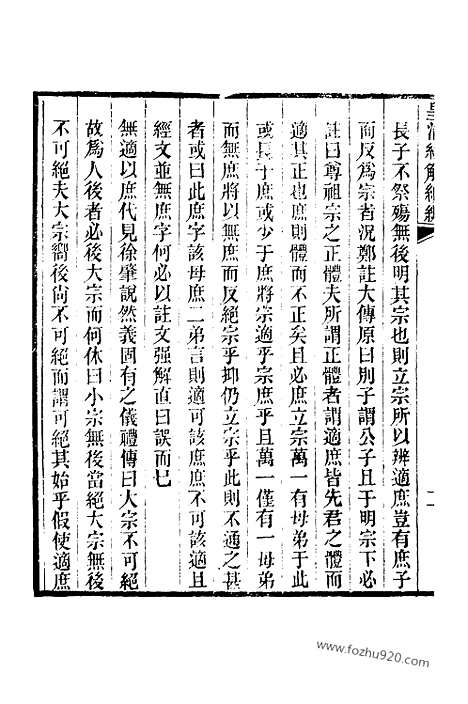 皇清經解續編
長子不祭殤無後明其宗也則立宗所以辨適庶豈有庶子
而反爲宗者況鄭註大傳原曰別子謂公子且于明宗下必
註曰尊祖宗之正體夫所謂正體者謂適庶皆先君之體而
適其正也庶則體而不正矣且必庶立宗萬一有母弟于此
或長于庶或少于庶將宗適乎宗庶乎且萬一僅有一母弟
而無庶將以無庶而反絕宗乎抑仍立宗乎此則不通之甚
者或曰此庶字該母庶二弟言則適可該庶庶不可該適且
經文並無庶字何必以註文强解直曰誤而已
無適以庶代見徐肇說然義固有之儀禮傳曰大宗不可絕
故爲人後者必後大宗而何休曰小宗無後當絕大宗無後
不可絕夫大宗嚮後尙不可絕而謂可絕其始乎假使適庶
www.fozhu920.com